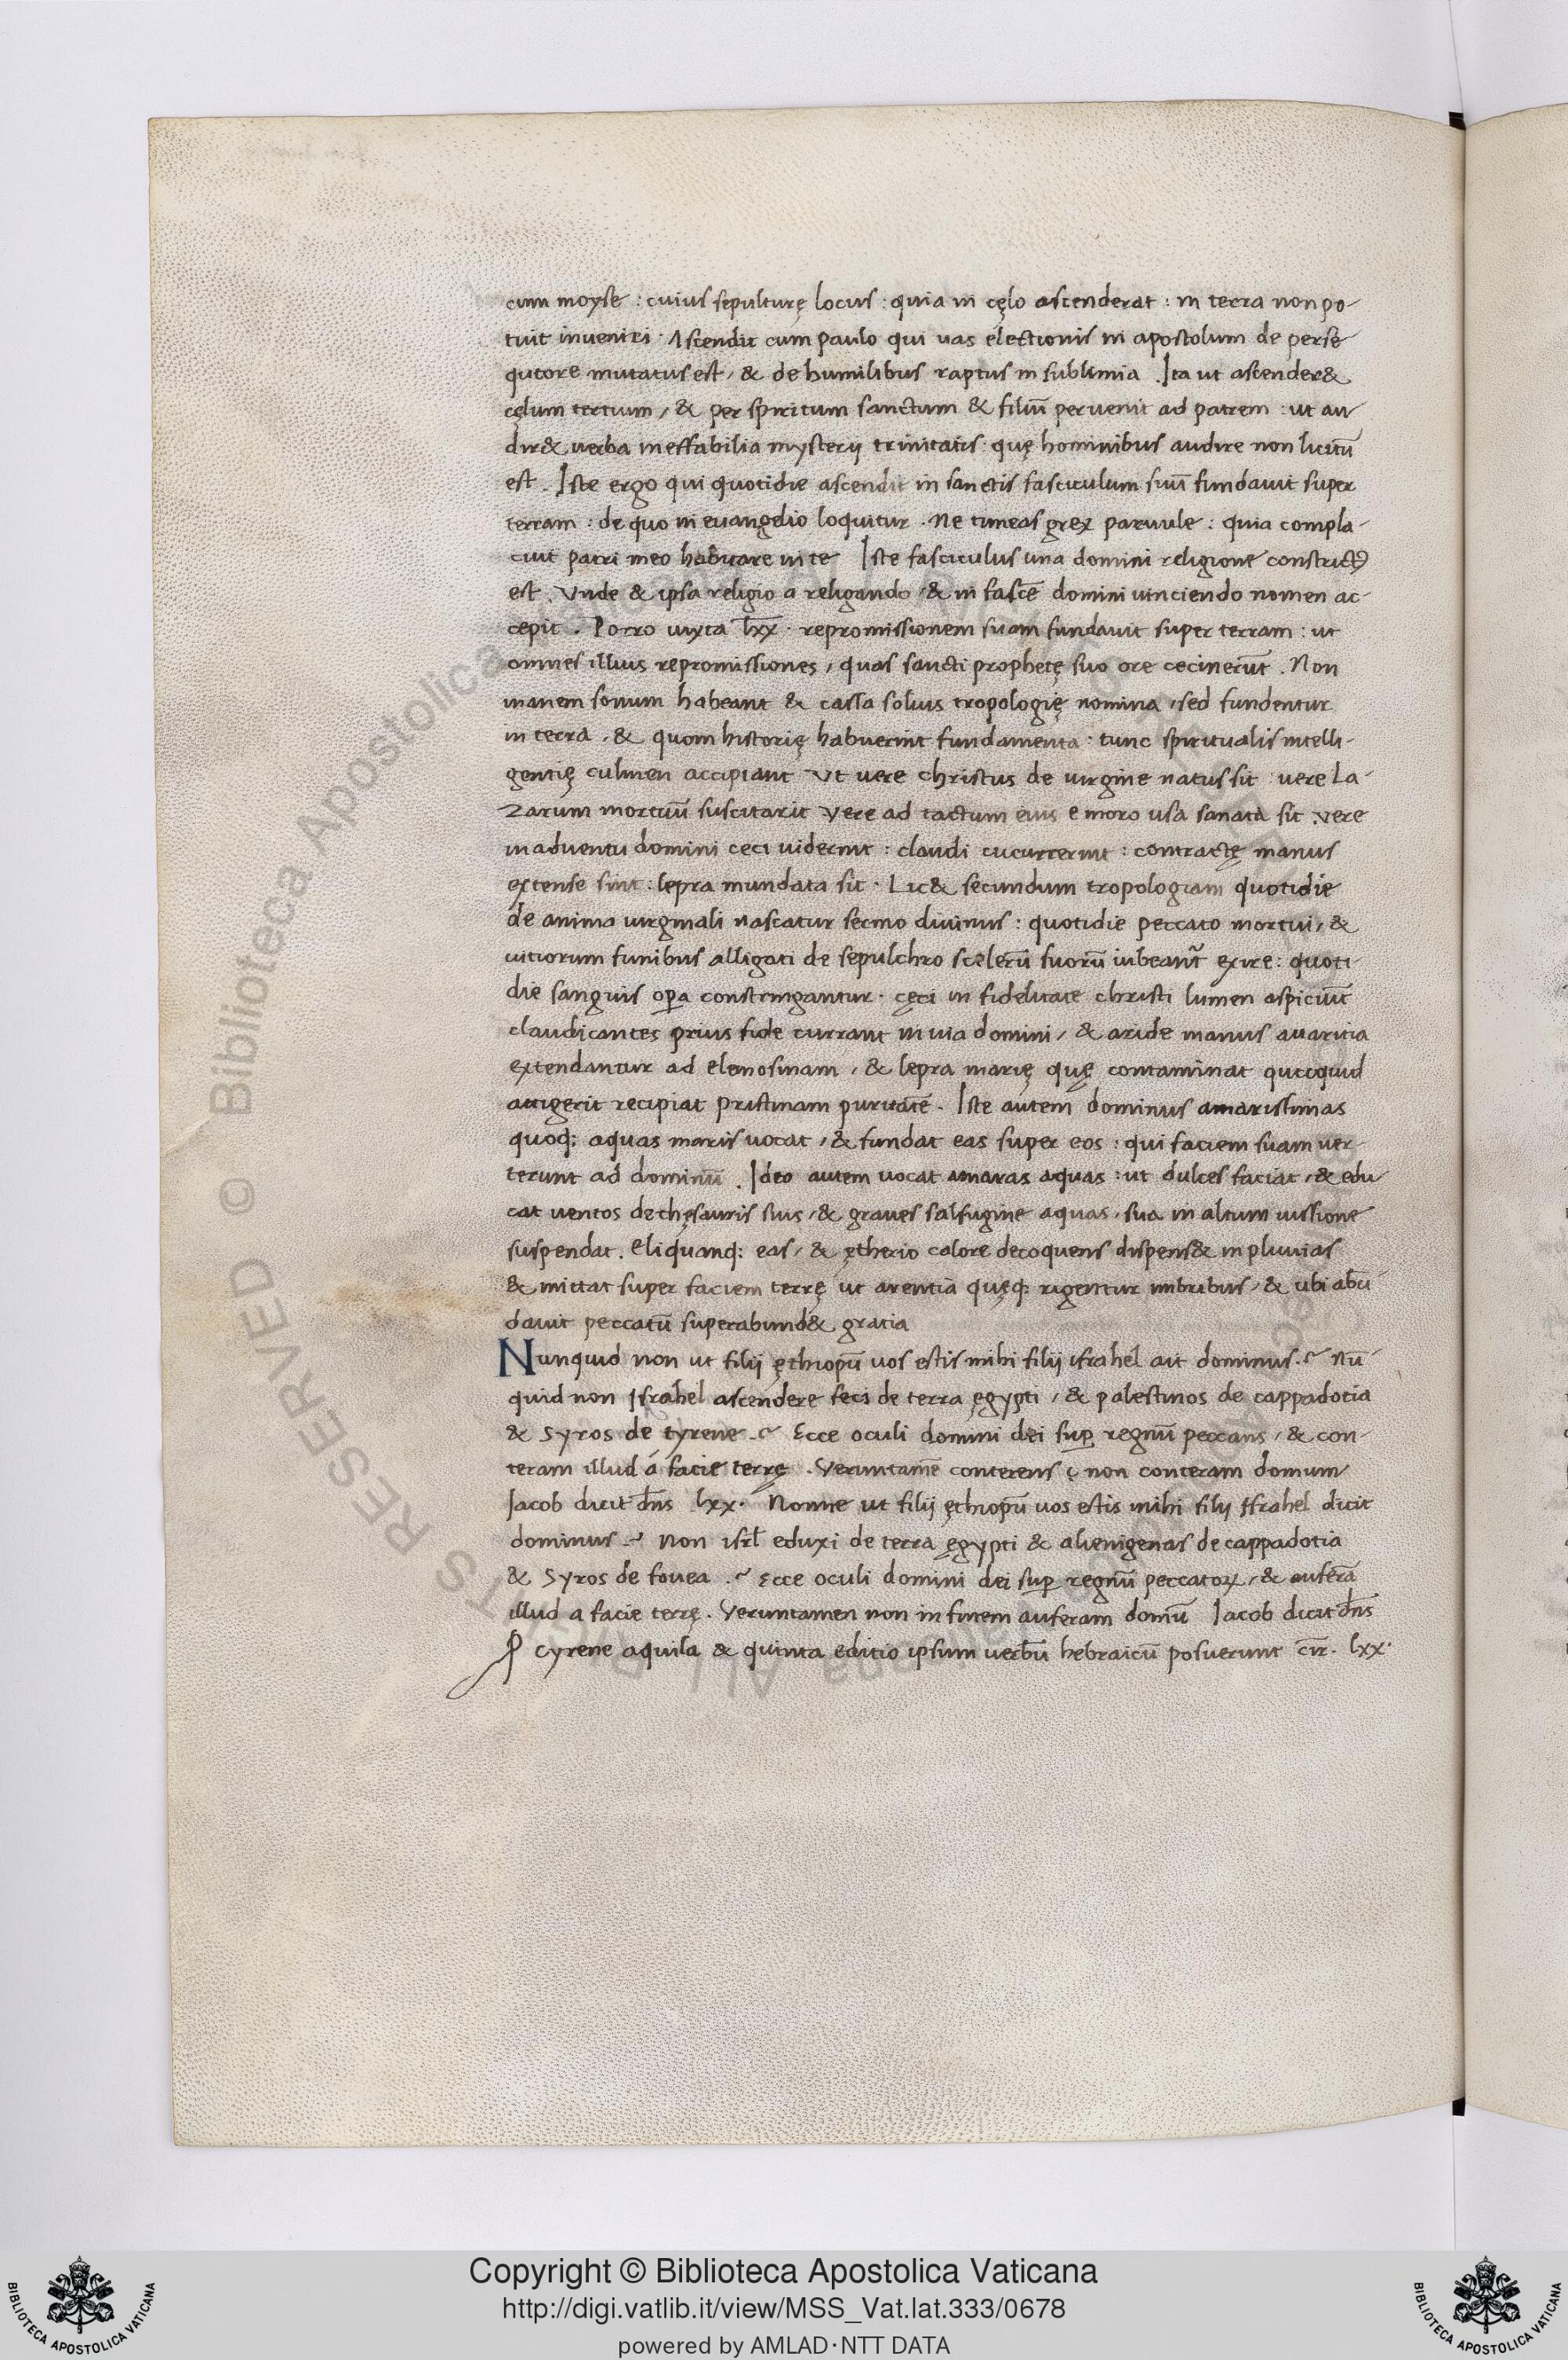 cum moyse : cuius sepulturę locus : quia in cęlo ascenderat : in terra non po-
tuit inveniri · Ascendit cum paulo qui uas electionis in apostolum de perse
qutore mutatus est, & de humilibus raptus in sublimia . Ita ut ascender&
cęlum tertium, & per spiritum sanctum & filiū peruenit ad patrem : ut au
dir& uerba ineffabilia mysterij trinitatis : quę hominibus audire non licitū
est . Iste ergo qui quotidie ascendit in sanctis fasciculum suū fundauit super
terram : de quo in euangelio loquitur . Ne timeas grex paruule : quia compla-
cuit patri meo habitare in te Iste fasciculus una domini religione constrictꝰ
est . Vnde & ipsa religio a religando & in fascē domini uinciendo nomen ac-
cepit . Porro iuxta lxx · repromissionem suam fundauit super terram : ut
omnes illius repromissiones, quas sancti prophetę suo ore cecinerūt . Non
inanem sonum habeant & cassa solius tropologię nomina, sed fundentur
in terra, & quom historię habuerint fundamenta : tunc spiritualis intelli-
gentię culmen accipiant Vt vere christus de uirgine natus sit : vere La-
zarum mortuū suscitarit Vere ad tactum eius emorousa sanata sit . vere
in aduentu domini ceci uiderint : claudi cucurrerint : contractę manus
extense sint : lepra mundata sit · Lic& secundum tropologiam quotidie
de anima uirginali nascatur sermo diuinus : quotidie peccato mortui, &
uitiorum funibus alligati de sepulchro scelerū suorū iubeant᷑ exire : quoti-
die sanguis opa constringantur · cęci in fidelitate christi lumen aspiciūt
claudicantes prius fide currant in uia domini, & aride manus auaritia
extendantur ad elemosinam, & lepra marię quę contaminat quicquid
attigerit recipiat pristinam puritatē . Iste autem dominus amarissimas
quoq; aquas maris uocat, & fundat eas super eos : qui faciem suam ver-
terunt ad dominū . Ideo autem uocat amaras aquas : ut dulces faciat, & edu
cat uentos de thęsauris suis, & graues salsugine aquas, sua in altum iussione
suspendat . eliquanq; eas, & ętherio calore decoquens dispens& in pluuias
& mittat super faciem terrę ut arentia quęq; rigentur imbribus, & ubi abū
dauit peccatū superabund& gratia
Nunquid non ut filij ęthiopū uos estis mihi filij israhel ait dominus .~ nū
quid non Israhel ascendere feci de terra ęgypti, & palestinos de cappadotia
& Syros de cyrene .~ Ecce oculi domini dei sup regnū peccans, & con-
teram illud á facie terrę . Veruntamē conterens ę non conteram domum
Iacob dicit dn̄s lxx · Nonne ut filij ęthiopū uos estis mihi filij Israhel dicit
dominus .~ Non isrl̄ eduxi de terra ęgypti & alienigenas de cappadotia
& Syros de fouea .~ Ecce oculi domini dei sup regnū peccatoꝝ, & auferā
illud a facie terrę . Veruntamen non in finem auferam domū Iacob dicit dn̄s
P cyrene aquila & quinta editio ipsum uerbū hebraicū posuerunt cir̄ · lxx ·
Copyright © Biblioteca Apostolica Vaticana
http://digi.vatlib.it/view/MSS_Vat.lat.333/0678
powered by AMLAD·NTT DATA